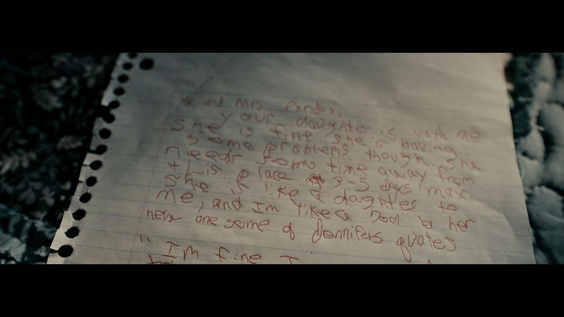 Mr. and Mrs. Pandos,
your daughter is with me
She is fine, she's having
some problems though. She
needs some time away from
this place 3-5 days max
She is like a daughter to
me, and Im like a to her
some of Jennifers quotes
" Im fine I